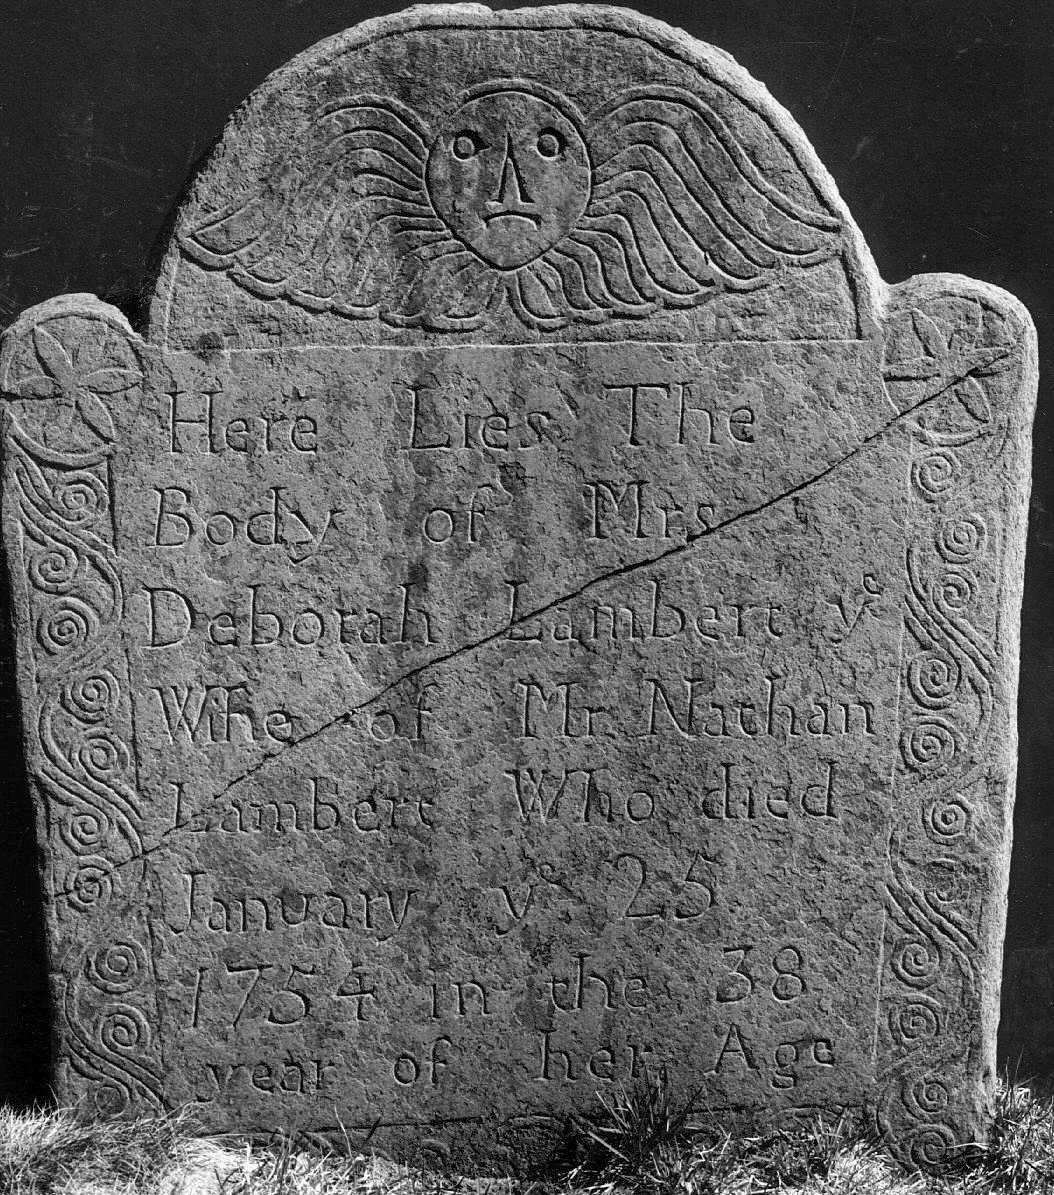 Here Lies The
Body of Mrs
Deborah Lambert yᵉ
Whe of Mr Nathan
Lambert Who died
January yᵉ 25
1754 in the 38
year of her Age